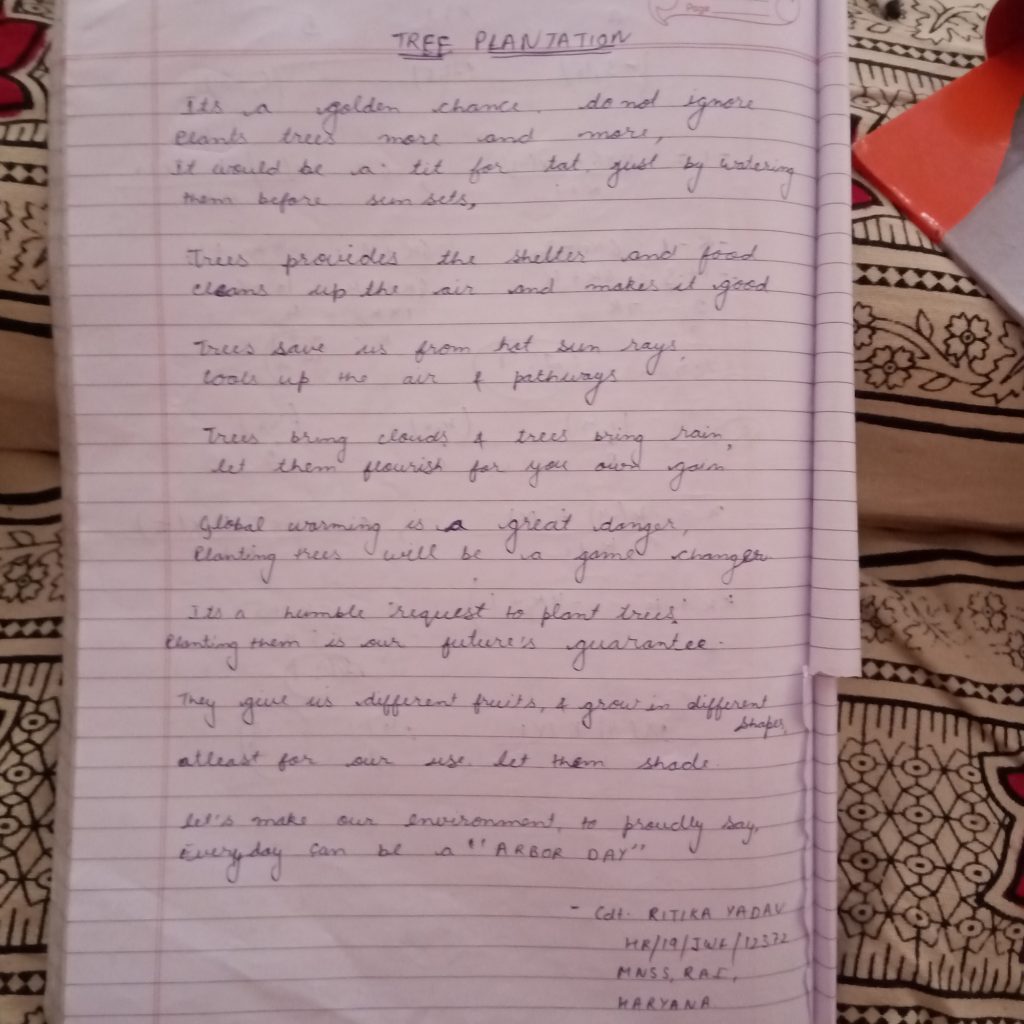 Page
TREE PLANTATION
Its a golden chance do not ignore
Plants trees more and more,
it would be a tit for tat, just by watering
them before sun sets,
Trees provides the shelter and food
cleans up the air and makes it good
Trees save us from hot sun rays,
Cools up the air & pathways
Trees bring clouds & trees bring rain,
let them flourish for you own gain
Global warming is a great danger,
Planting trees will be a game changer
Its a humble request to plant trees
Planting them is our future's guarantee.
They give us different fruits, & grow in different
shapes,
atleast for our use let them shade.
let's make our environment, to proudly say,
Everyday can be a "ARBOR DAY"
- Cdt. RITIKA YADAV
HR/19/JWA/12372
MNSS, RAI,
HARYANA